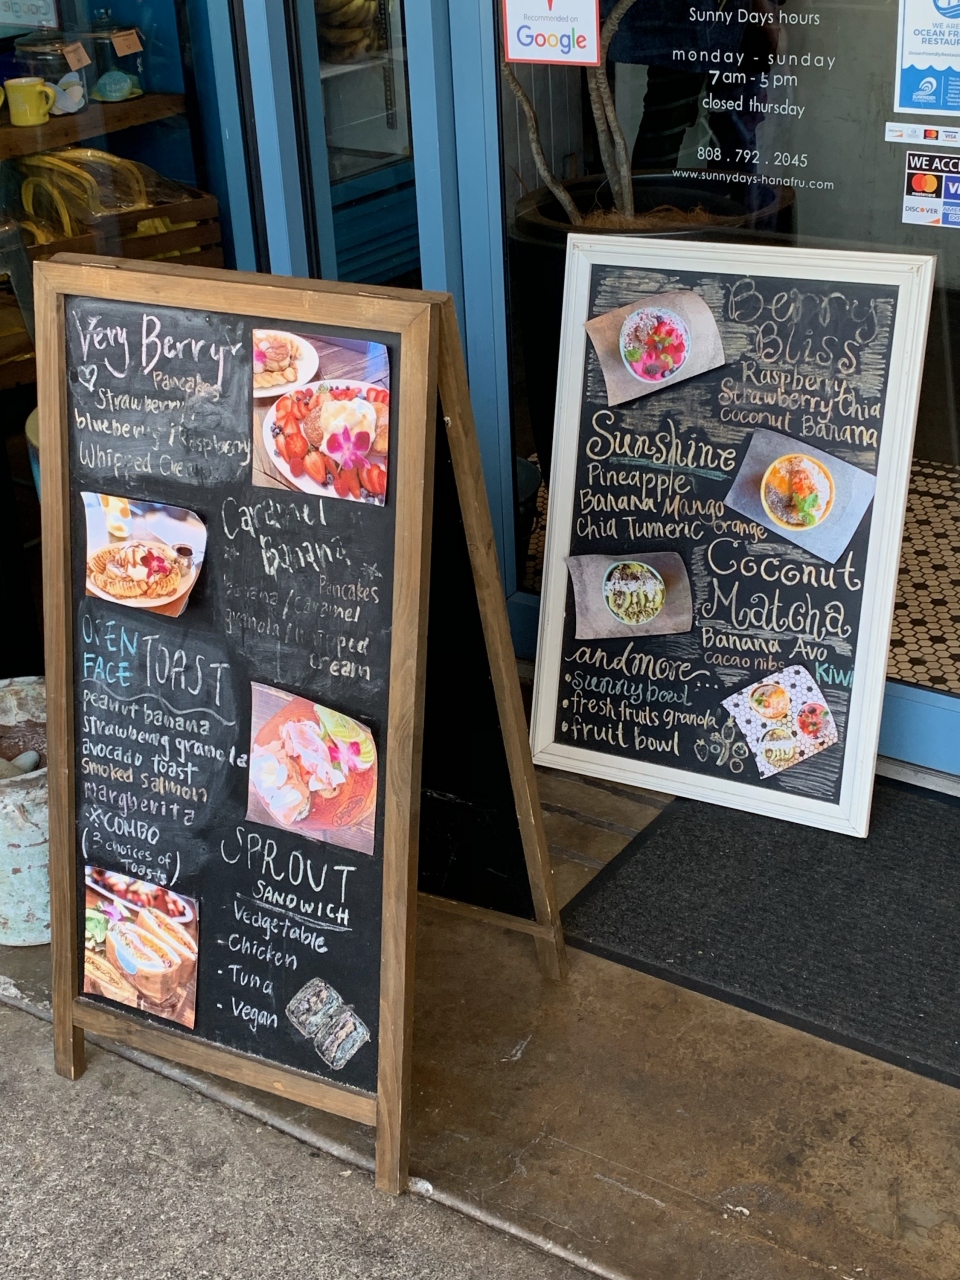 Recommended on
Google
Sunny Days hours
monday - sunday
7am - 5pm
closed thursday
808 . 792 . 2045
www.sunnydays-hanafru.com
WE ARE
OCEAN FRI
RESTAUR
WE ACC
mastercard
DISCOVER
Very Berry
Pancakes
Strawberry
blueberry / Raspberry
Whipped Cream
Caramel
Banana
Pancakes
Banana / caramel
granola / whipped
cream
OPEN
FACE TOAST
peanut banana
strawberry granola
avocado toast
Smoked Salmon
margherita
※COMBO
(2 choices of
Toasts)
SPROUT
SANDWICH
Vedgetable
- Chicken
- Tuna
- Vegan
Berry
Bliss
Raspberry
Strawberry Chia
Coconut Banana
Sunshine
Pineapple
Banana Mango
Chia Tumeric Orange
Coconut
Matcha
Banana Avo
cacao nibs Kiwi
and more...
• sunny bowl
• fresh fruits granola
• fruit bowl